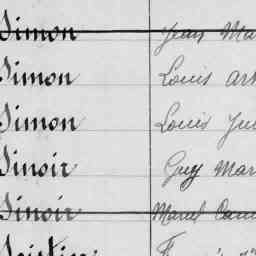 Simon Jean Ma
Simon Louis Art
Simon Louis Jul
Sinoir Guy Mar
Sinoir Marcel Cam